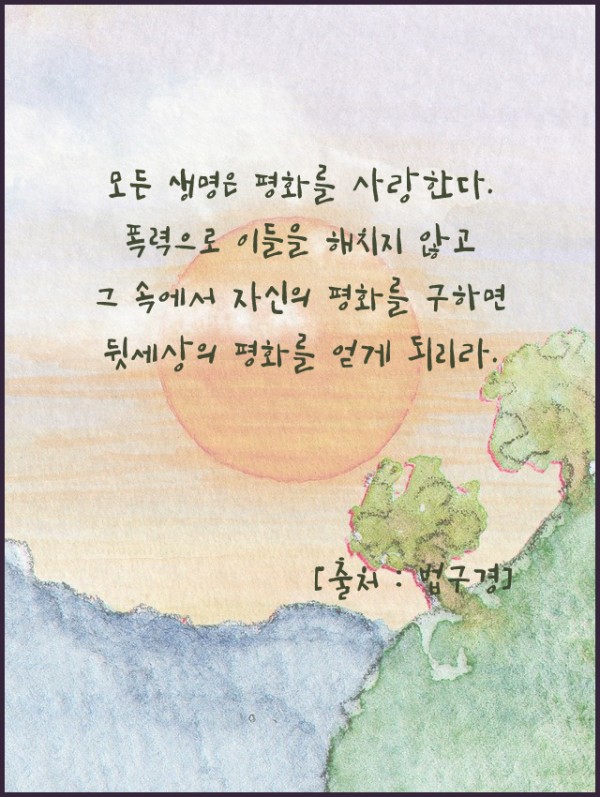 모든 생명은 평화를 사랑한다.
폭력으로 이들을 해치지 않고
그 속에서 자신의 평화를 구하면
뒷세상의 평화를 얻게 되리라.
[출처 : 법구경]